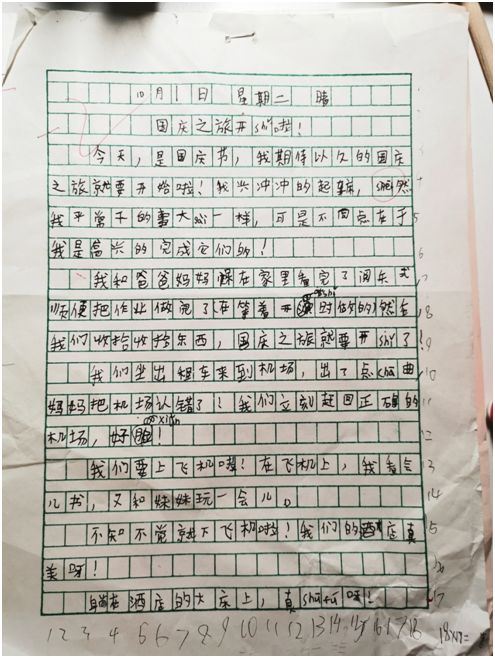 10月1日 星期二 晴
国庆之旅开shǐ啦!
今天,是国庆节,我期待以久的国庆
之旅就要开始啦!我兴冲冲的起床,suī然
我平常干的事大 一样,可是不同点在于
我是高兴的完成它们的!
我和爸爸妈妈 在家里看完了阅兵式,
顺便把作业做完了在等着开 时 的 然后
我们收拾收拾东西,国庆之旅就要开shǐ了!
我们坐出租车来到机场,出了点chā曲
妈妈把机场认错了!我们立刻赶回正确的
机场,好 xiǎn!
我们要上飞机喽!在飞机上,我看会
儿书,又和妹妹玩一会儿。
不知不觉就下飞机啦!我们的酒店真
美呀!
躺在酒店的大床上,真shū fú呀!
1 2 3 4 5 6 7 8 9 10 11 12 13 14 15 16 17 18 18×17=
4
6
7
8
9
10
11
12
13
14
15
16
17